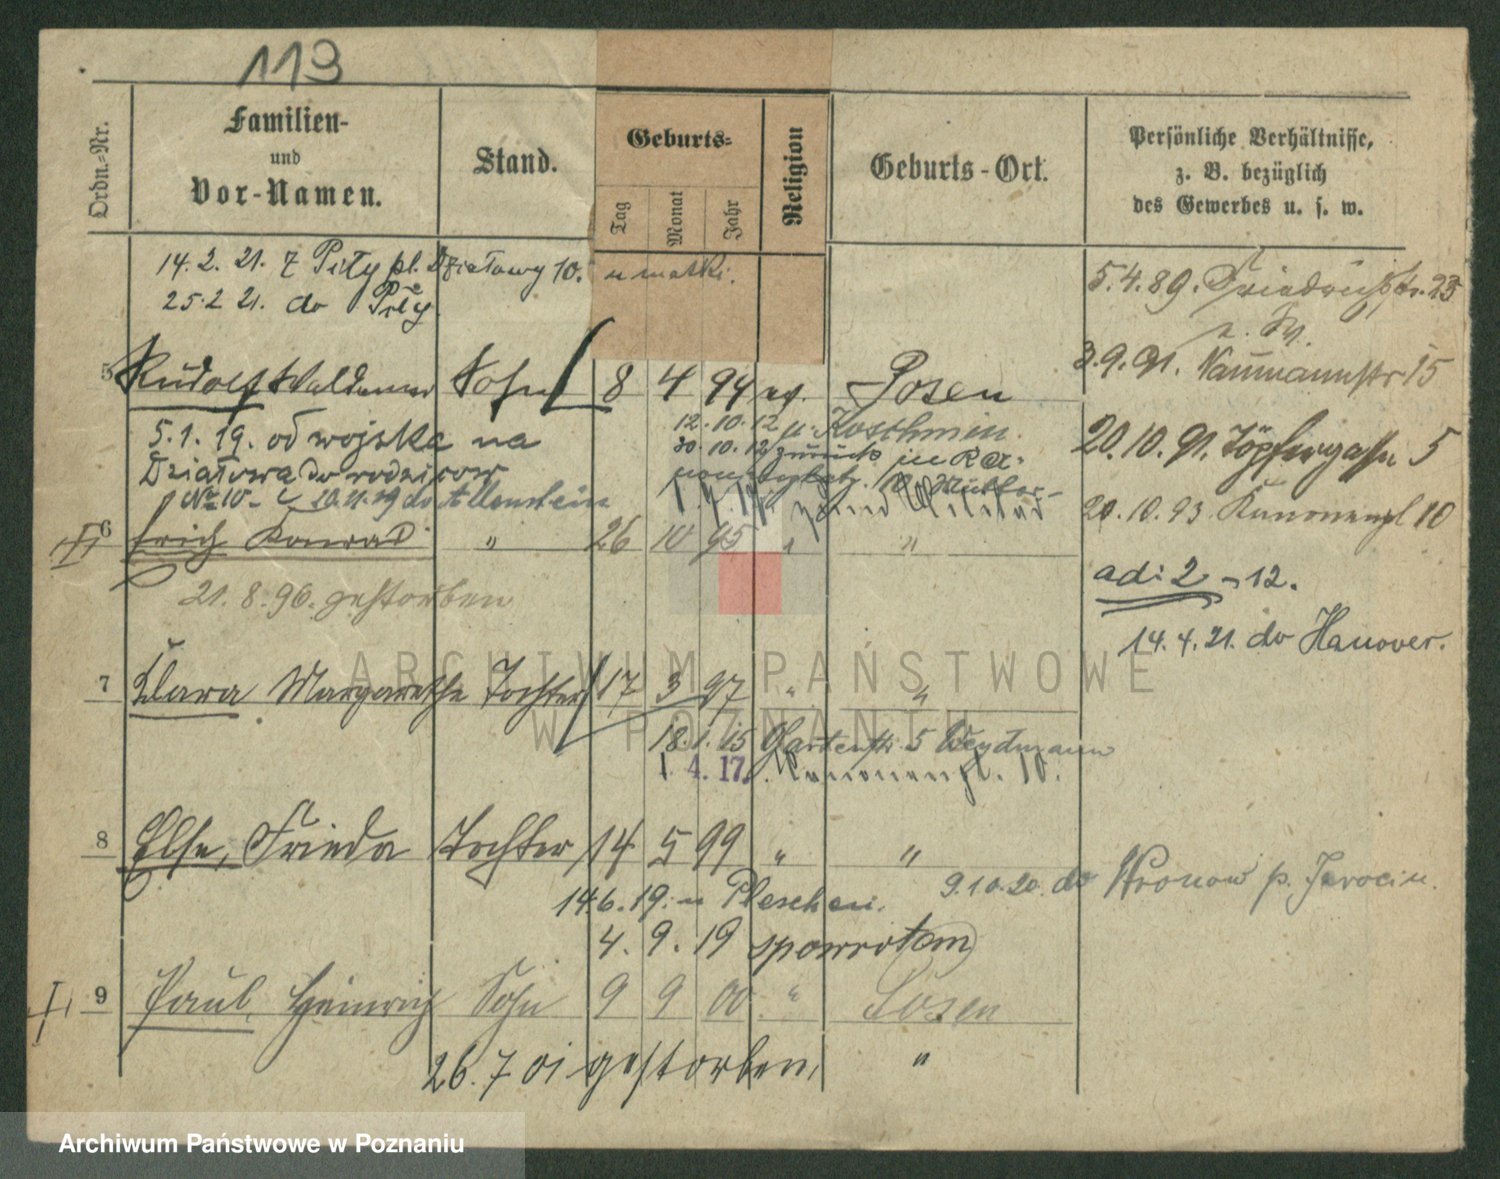 119
Ordn.-Nr.
Familien-
und
Vor-Namen.
Stand.
Geburts-
Tag
Monat
Jahr
Religion
Geburts-Ort.
Persönliche Verhältnisse,
z. B. bezüglich
des Gewerbes u. s. w.
14.2. 21. z Piły pl. Działowy 10. u matki.
25.2 21. do Piły
5.4.89. Friedrichstr. 23
3.9.91. Naumannstr 15
5 Rudolf Waldemar Sohn 8 4 94 ev. Posen
5.1.19. od wojska na
Działowa do rodziców
No 10 - 10.11.19 do Allenstein
12.10.12 n. Koschmin.
30.10.12 zurück
1.7.17. zum Militär
20.10.91. Töpfergasse 5
20.10.93 Kanonenpl 10
6 Erich Konrad " 26 10 95 " "
21.8.96. gestorben
adi 2 - 12.
14.4.21. do Hanover.
7 Klara Margarethe Tochter 17 3 97 " "
18.1.15 Gartenstr. 5 Weydmann
1.4.17. Kanonenpl. 10.
8 Else, Frieda Tochter 14 5 99 " "
14.6.19. n Pleschen.
9.10.20. do Wronow p. Jarocin.
4.9.19 spowrotem
9 Paul, Heinrich Sohn 9 9 00 " Posen
26.7 01 gestorben, "
ARCHIWUM PAŃSTWOWE
W POZNANIU
Archiwum Państwowe w Poznaniu